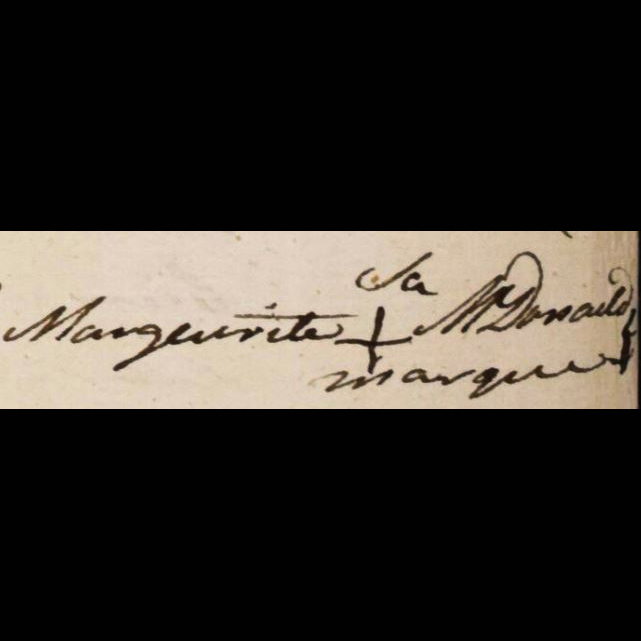 Sa
Marguerite + McDonald
marque